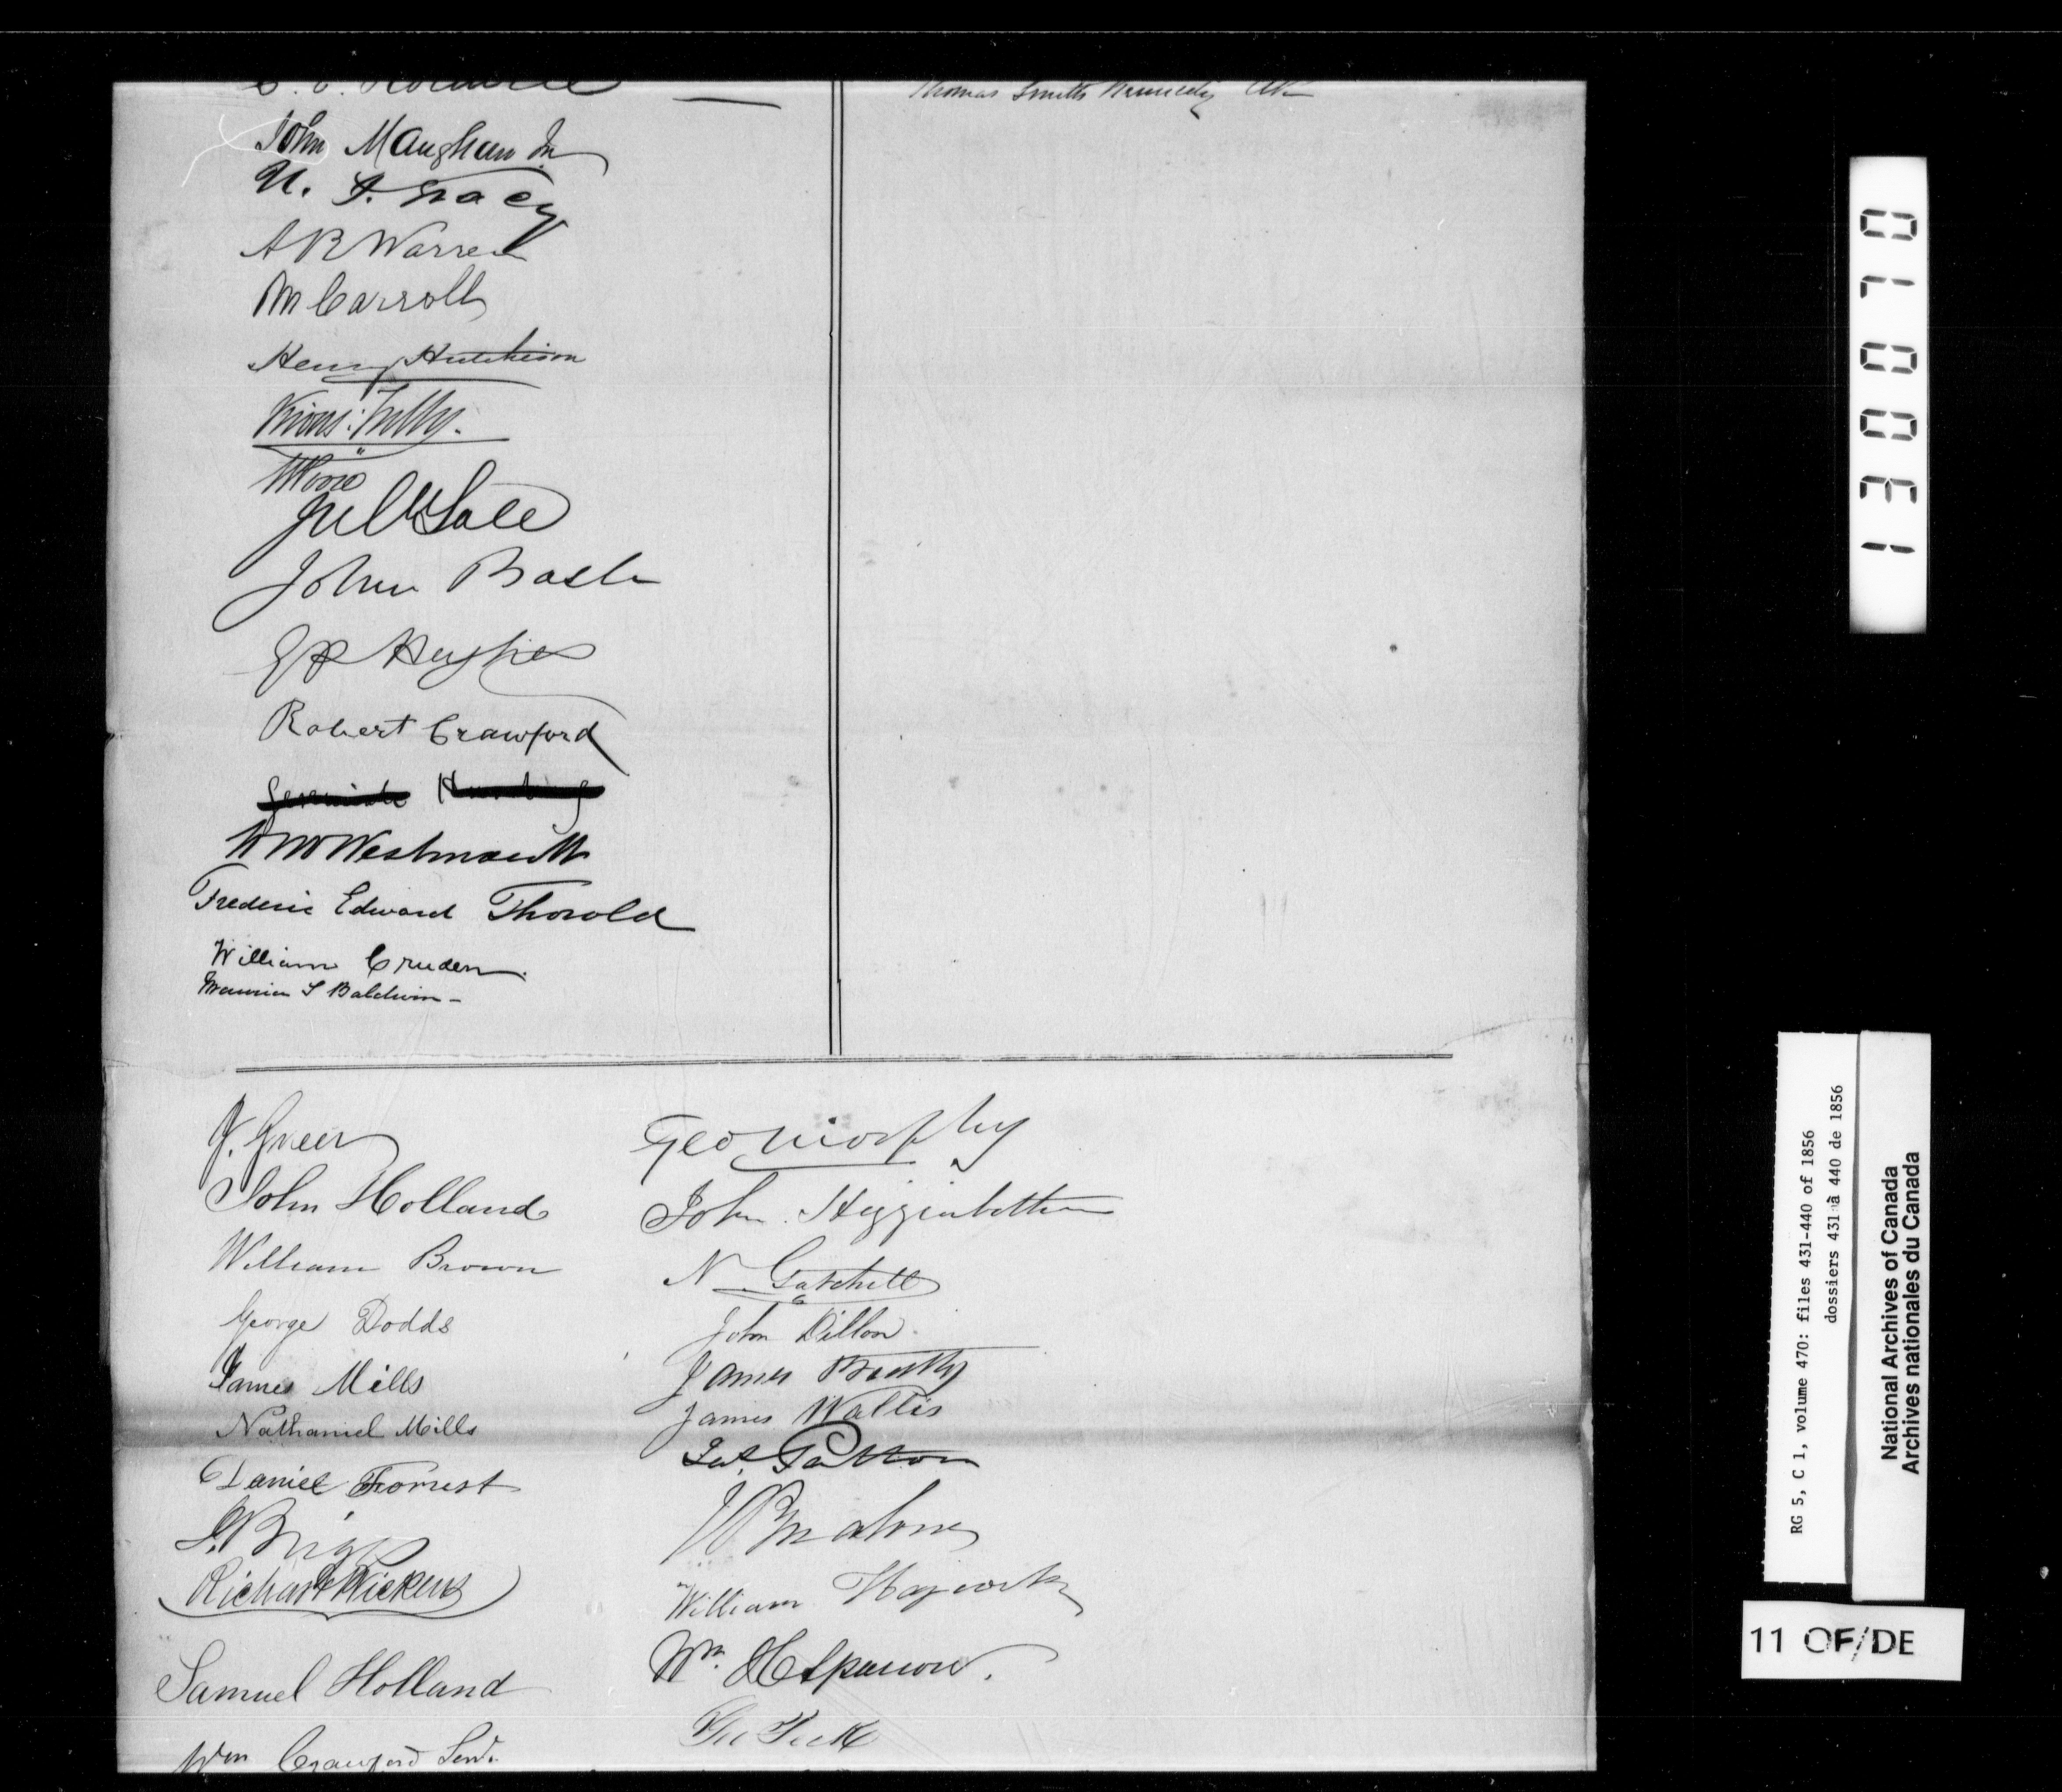 Thomas Smith Kennedy
John Maughan Jr
A B Warren
Wm Carroll
Henry Hutchison
Kivas Tully.
John
Hughes
Robert Crawford
Westmacott
Frederic Edward Thorold
William Cruden.
Maurice S Baldwin -
J. Greer
John Holland
William Brown
George Dodds
James Mills
Nathaniel Mills
Daniel Forrest
Briggs
Richard Wickens
Samuel Holland
Wm Crawford Senr.
Geo Murphy
John Higginbotham
N Gatchell
John Dillon.
James Beatty
James Wallis
Jas. Patton
Malone
William
Wm. H Sparrow.
Geo Peck
130070
RG 5, C 1, volume 470: files 431-440 of 1856
dossiers 431 à 440 de 1856
National Archives of Canada
Archives nationales du Canada
11 OF/DE